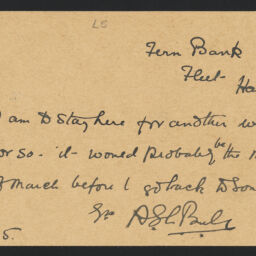 LS
Fern Bank
Fleet
Ha
I am to stay here for another w
or so. it would probably be the m
of March before I go back to Lon
Yrs
5.